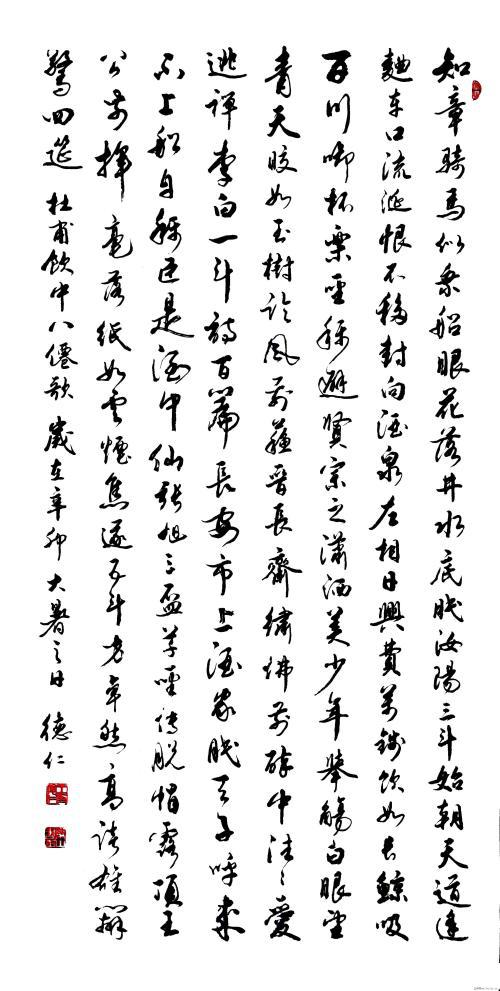 知章騎馬似乘船眼花落井水底眠汝陽三斗始朝天道逢
麯车口流涎恨不移封向酒泉左相日興費萬錢飲如長鯨吸
百川銜杯樂聖稱避賢宗之瀟洒美少年舉觴白眼望
青天皎如玉樹臨風前蘇晉長齋繡佛前醉中往々愛
逃禪李白一斗詩百篇長安市上酒家眠天子呼來
不上船自稱臣是酒中仙張旭三盃草聖傳脫帽露頂王
公前揮毫落紙如雲煙焦遂五斗方卓然高談雄辯
驚四筵 杜甫飲中八僊歌 歲在辛卯大暑之日 德仁